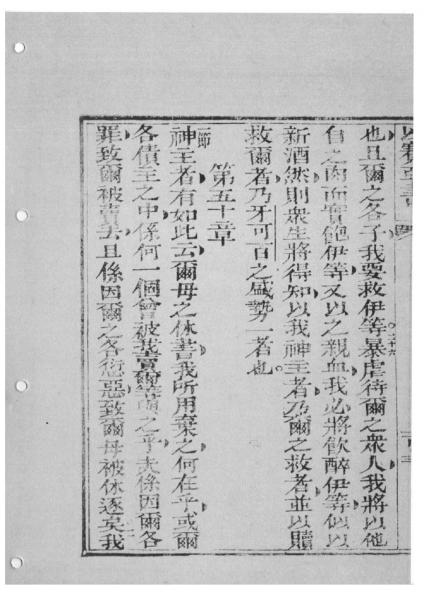 以賽亞書
也且爾之各子我要救伊等二十六暴虐待爾之衆人我將以他
自之肉而實飽伊等又以之親血我必將歡醉伊等似以
新酒然則衆生將得知以我神主者乃爾之救者並以贖
救爾者乃牙可百之盛勢一者也
第五十章
一節神主者有如此云爾母之休書我所用棄之何在乎或爾
各債主之中係何一個曾被我賣爾等與之乎夫係因爾各
罪致爾被賣去且係因爾之各愆惡致爾母被休逐矣我